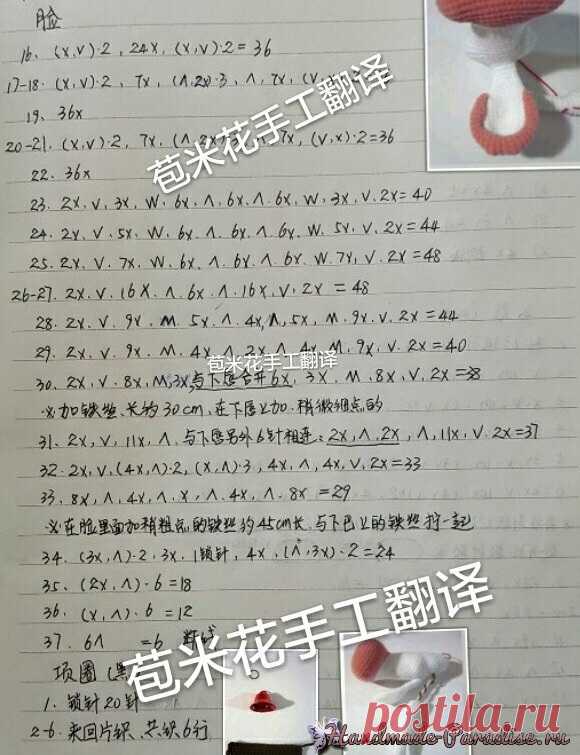 脸
16、(x,v)·2,24x,(x,v)·2=36
17-18.(x,v)·2,7x,(Λ,2x)·3,Λ,7x,
19、36x
20-21.(x,v)·2,7x,7x,(v,x)·2=36
22.36x
23.2x,v,3x,w,6x,Λ,6x,Λ.6x,w,3x,v.2x=40
24.2x,v.5x,w.6x.Λ.6x.Λ.6x.w.5x,v.2x=44
25.2x,v.7x.w.6x.Λ.6x.Λ.6x.w.7x,v.2x=48
26-27.2x.v.16x.Λ.6x.Λ.16x,v.2x=48
28.2x.v.9x.M.5x.Λ.4x,Λ,5x,M.9x.v.2x=44
29.2x,v.9x.M.4x,Λ.2x.Λ.4x.M.9x,v.2x=40
30.2x,v.8x,M,3x,与下唇合并6x,3x,M.8x,v,2x=38
※加铁丝,长约30cm,在下唇上加.稍微细点的
31.2x,v,11x,Λ.与下唇另外6针相连:2x,Λ.2x,Λ,11x,v.2x=37
32.2x,v,(4x,Λ)·2,(x,Λ)·3,4x,Λ,4x,v,2x=33
33.8x,Λ,4x,Λ.x,Λ.4x,Λ.8x=29
※在脸里面加稍粗点的铁丝约45cm长.与下巴上的铁丝拧一起
34.(3x,Λ)·2.3x.1锁针,4x,(Λ,3x)·2=24
35.(2x,Λ)·6=18
36.(x,Λ)·6=12
37.6Λ=6 断线
项圈(黑
1.锁针20针
2-6.来回片织、共织6行
苞米花手工翻译
苞米花手工翻译
苞米花手工翻译
postila.ru
Handmade-Paradise.ru